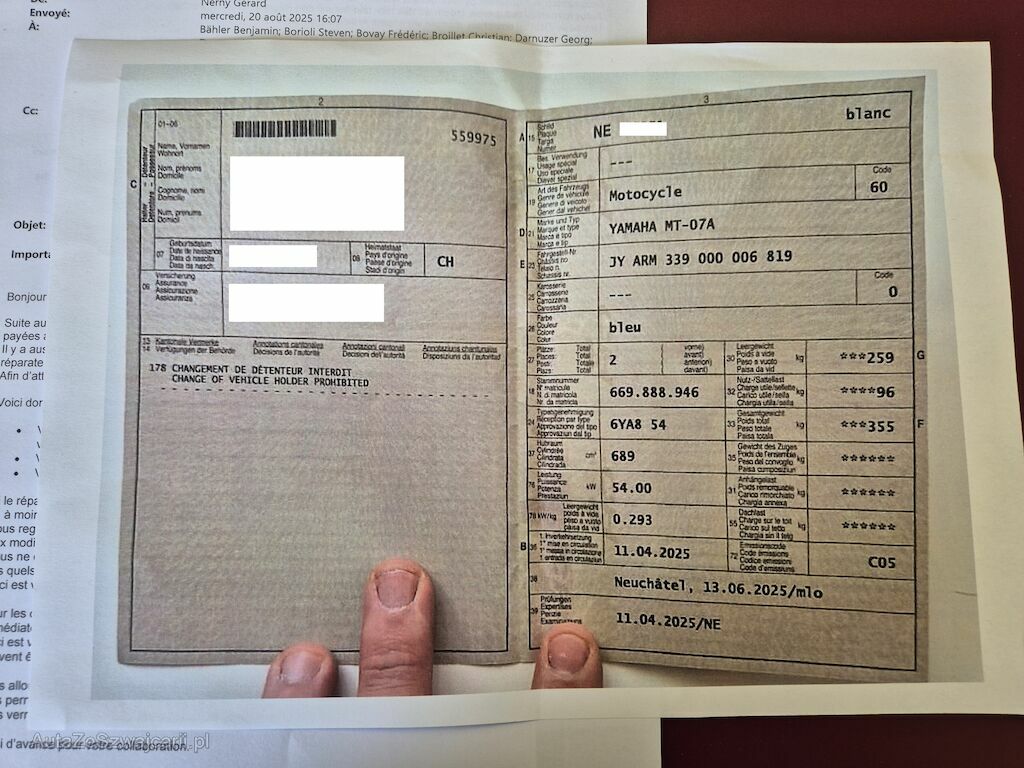 De: Nerny Gérard
Envoyé: mercredi, 20 août 2025 16:07
À: Bähler Benjamin; Borioli Steven; Bovay Frédéric; Broillet Christian; Darnuzer Georg;
Cc:
Objet:
Importa
Bonjour
Suite au
payées a
Il y a aus
réparate
Afin d'att
Voici dor
2
01-06
559975
C
Halter Détenteur
Name, Vornamen
Wohnort
Nom, prénoms
Domicile
Cognome, nomi
Domicilio
Num, prenums
Domicil
07 Geburtsdatum
Date de naissance
Data di nascita
Data da nasch.
08 Heimatstaat
Pays d'origine
Paese d'origine
Stadi d'origin
CH
09 Versicherung
Assurance
Assicurazione
Assicuranza
13 Kantonale Vermerke Annotations cantonales Annotazioni cantonali Annotaziuns chantunalas
14 Verfügungen der Behörde Décisions de l'autorité Decisioni dell'autorità Disposiziuns da l'autoritad
178 CHANGEMENT DE DÉTENTEUR INTERDIT
CHANGE OF VEHICLE HOLDER PROHIBITED
3
A 15 Schild
Plaque
Targa
Numer
NE
blanc
17 Bes. Verwendung
Usage spécial
Uso speciale
Diever spezial
---
19 Art des Fahrzeugs
Genre de véhicule
Genere di veicolo
Gener dal vehichel
Motocycle
Code
60
D 21 Marke und Typ
Marque et type
Marca e tipo
Marca e tip
YAMAHA MT-07A
E 23 Fahrgestell-Nr.
Châssis no
Telaio n.
Schassis nr.
JY ARM 339 000 006 819
25 Karosserie
Carrosserie
Carrozzeria
Carossaria
---
Code
0
26 Farbe
Couleur
Colore
Colur
bleu
27 Plätze: Total
Places: Total
Posti: Totale
Plazs: Total
2
(vorne)
avant)
anteriori)
davant)
30 Leergewicht
Poids à vide
Peso a vuoto
Paisa da vid
kg
***259
G
18 Stammnummer
N° matricule
N. di matricola
Nr. da matricla
669.888.946
32 Nutz-/Sattellast
Charge utile/sellette
Carico utile/sella
Chargia utila/sella
kg
****96
24 Typengenehmigung
Réception par type
Approvazione del tipo
Approvaziun dal tip
6YA8 54
33 Gesamtgewicht
Poids total
Peso totale
Paisa totala
kg
***355
F
37 Hubraum
Cylindrée
Cilindrata
Cilindrada
cm³
689
35 Gewicht des Zuges
Poids de l'ensemble
Peso del convoglio
Paisa cumposiziun
kg
******
76 Leistung
Puissance
Potenza
Prestaziun
kW
54.00
31 Anhängelast
Poids remorquable
Carico rimorchiato
Chargia annexa
kg
******
78 kW/kg Leergewicht
poids à vide
peso a vuoto
paisa da vid
0.293
55 Dachlast
Charge sur le toit
Carico sul tetto
Chargia sin il tetg
kg
******
B 36 1. Inverkehrsetzung
1re mise en circulation
1a messa in circolazione
1a entrada en circulaziun
11.04.2025
72 Emissionscode
Code émissions
Codice emissioni
Code d'emissiuns
C05
38
Neuchâtel, 13.06.2025/mlo
39 Prüfungen
Expertises
Perizie
Examinaziuns
11.04.2025/NE
le répa
à moir
ous reg
x modi
us ne
s quels
ci est
ur les
médiate
ci est
vent ê
s allo
s perr
s verr
i d'avance pour votre collaboration.
AutaZeSzwajcarii.pl